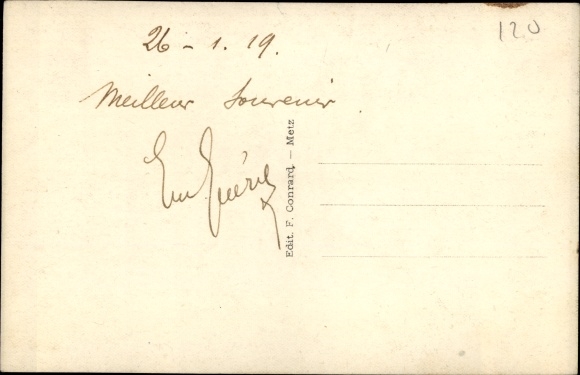 120
26 - 1. 19.
Meilleur Souvenir
Edit. F. Conrard, — Metz